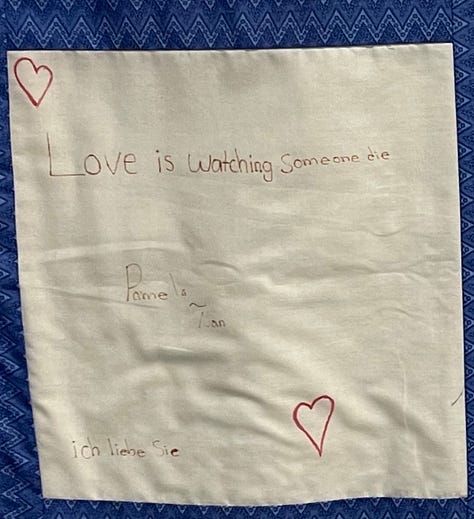 Love is watching someone die
Pamela
~
ich liebe Sie